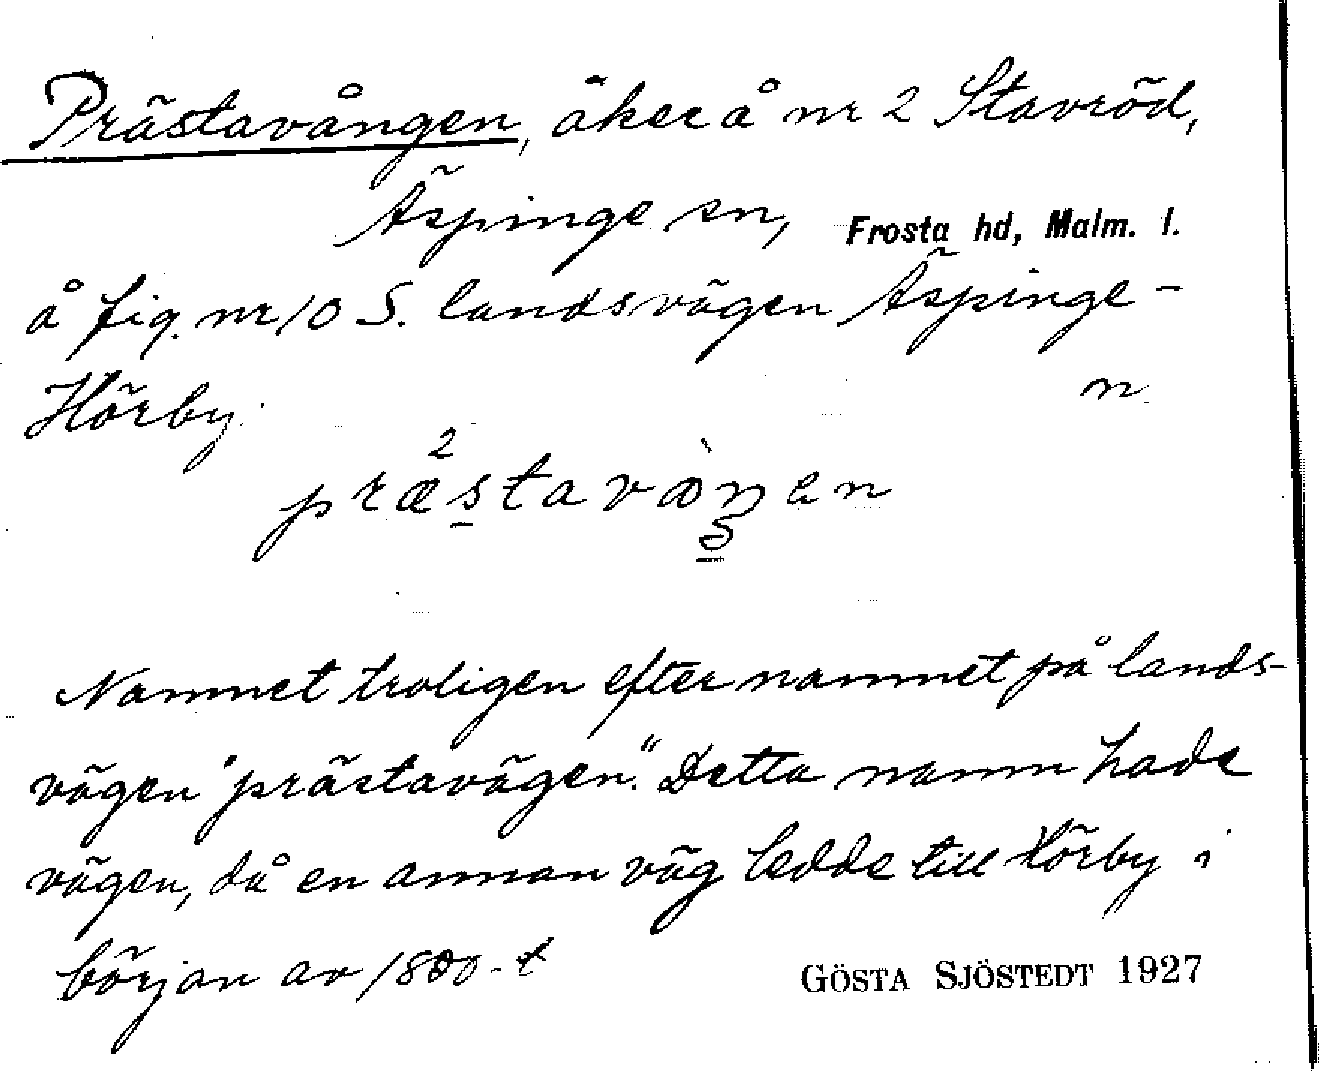 Prästavången, åker å nr 2 Stavröd,
Äspinge sn, Frosta hd, Malm. l.
å fig. nr 10 S. landsvägen Äspinge-
Hörby. n
2
præstavàŋen
Namnet troligen efter namnet på lands-
vägen "prästavägen." Detta namn hade
vägen, då en annan väg ledde till Hörby i
början av 1800-t
GÖSTA SJÖSTEDT 1927